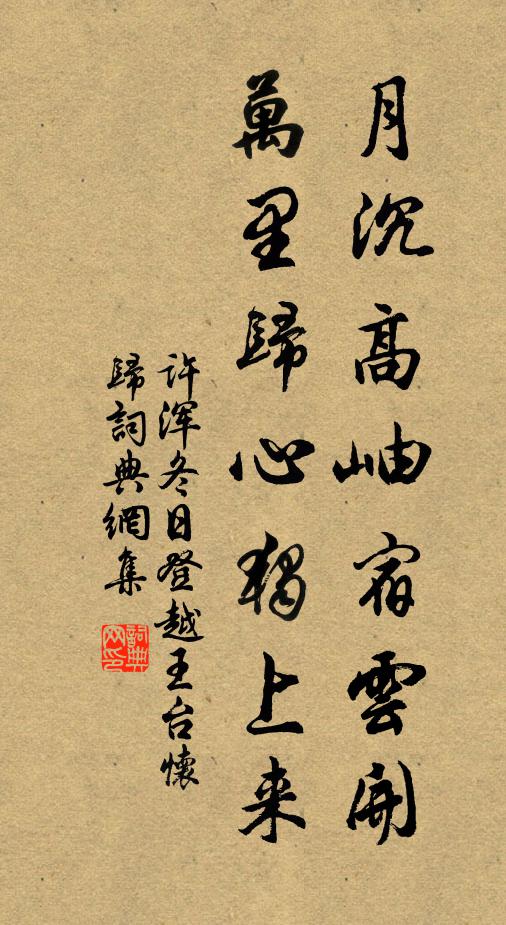 月沉高岫宿雲開
萬里歸心獨上来
许渾冬日登越王台懷
歸詞典網集
詞典网印